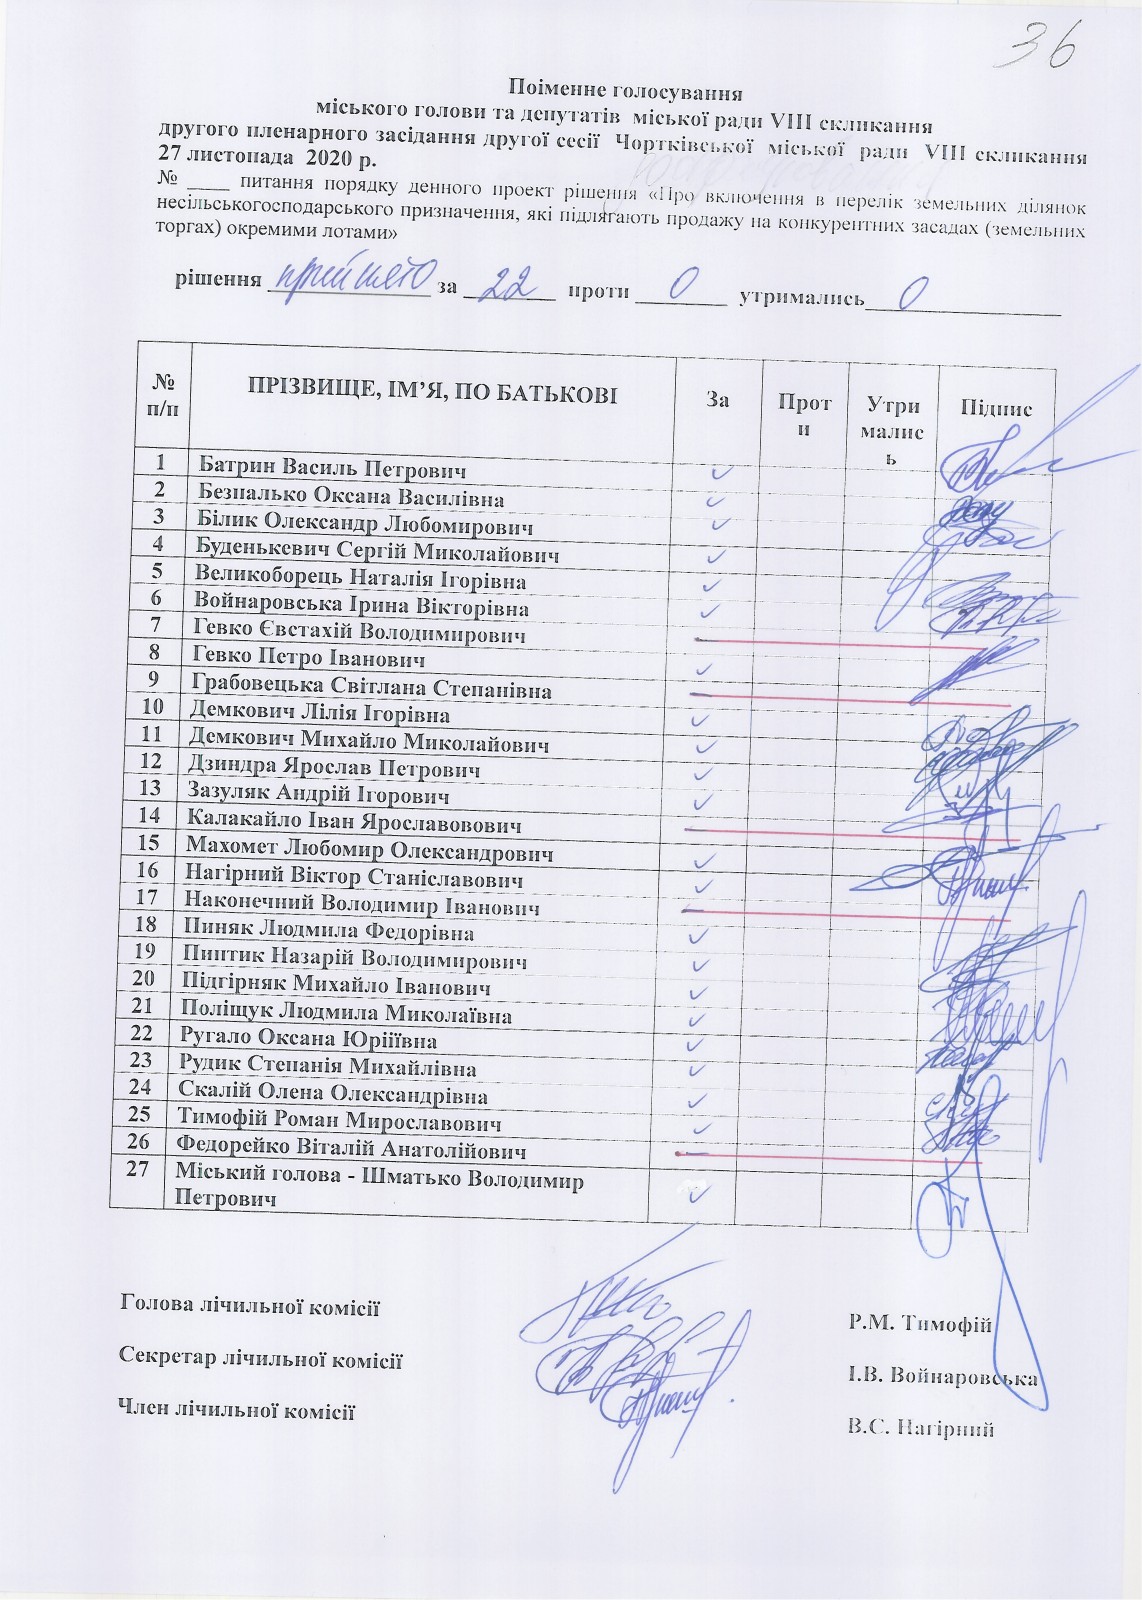 36
Поіменне голосування
міського голови та депутатів міської ради VIII скликання
другого пленарного засідання другої сесії Чортківської міської ради VIII скликання
27 листопада 2020 р.
№ ____ питання порядку денного проект рішення «Про включення в перелік земельних ділянок
несільськогосподарського призначення, які підлягають продажу на конкурентних засадах (земельних
торгах) окремими лотами»
рішення прийнято за 22 проти 0 утримались 0
№ п/п ПРІЗВИЩЕ, ІМ’Я, ПО БАТЬКОВІ За Проти Утрималис ь Підпис
1 Батрин Василь Петрович ✓
2 Безпалько Оксана Василівна ✓
3 Білик Олександр Любомирович ✓
4 Буденькевич Сергій Миколайович ✓
5 Великоборець Наталія Ігорівна ✓
6 Войнаровська Ірина Вікторівна ✓
7 Гевко Євстахій Володимирович –
8 Гевко Петро Іванович ✓
9 Грабовецька Світлана Степанівна –
10 Демкович Лілія Ігорівна ✓
11 Демкович Михайло Миколайович ✓
12 Дзиндра Ярослав Петрович ✓
13 Зазуляк Андрій Ігорович ✓
14 Калакайло Іван Ярославовович –
15 Махомет Любомир Олександрович ✓
16 Нагірний Віктор Станіславович ✓
17 Наконечний Володимир Іванович –
18 Пиняк Людмила Федорівна ✓
19 Пиптик Назарій Володимирович ✓
20 Підгірняк Михайло Іванович ✓
21 Поліщук Людмила Миколаївна ✓
22 Ругало Оксана Юріїївна ✓
23 Рудик Степанія Михайлівна ✓
24 Скалій Олена Олександрівна ✓
25 Тимофій Роман Мирославович ✓
26 Федорейко Віталій Анатолійович –
27 Міський голова - Шматько Володимир
Петрович ✓
Голова лічильної комісії Р.М. Тимофій
Секретар лічильної комісії І.В. Войнаровська
Член лічильної комісії В.С. Нагірний